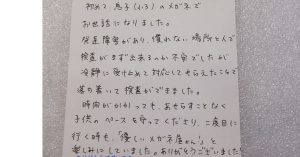 初めて息子(小3)のメガネで
お世話になりました。
発達障害があり、慣れない場所とんで
検査がまず出来るのか不安でしたが
冷静に受け止めて対応してもらえたことで
落ち着いて検査ができました。
時間がかかっても、あせらすことなく
子供のペースを守ってくださり、二度目に
行く時も、「優しいメガネ屋さん!」と
楽しみにしていました。ありがとうございました